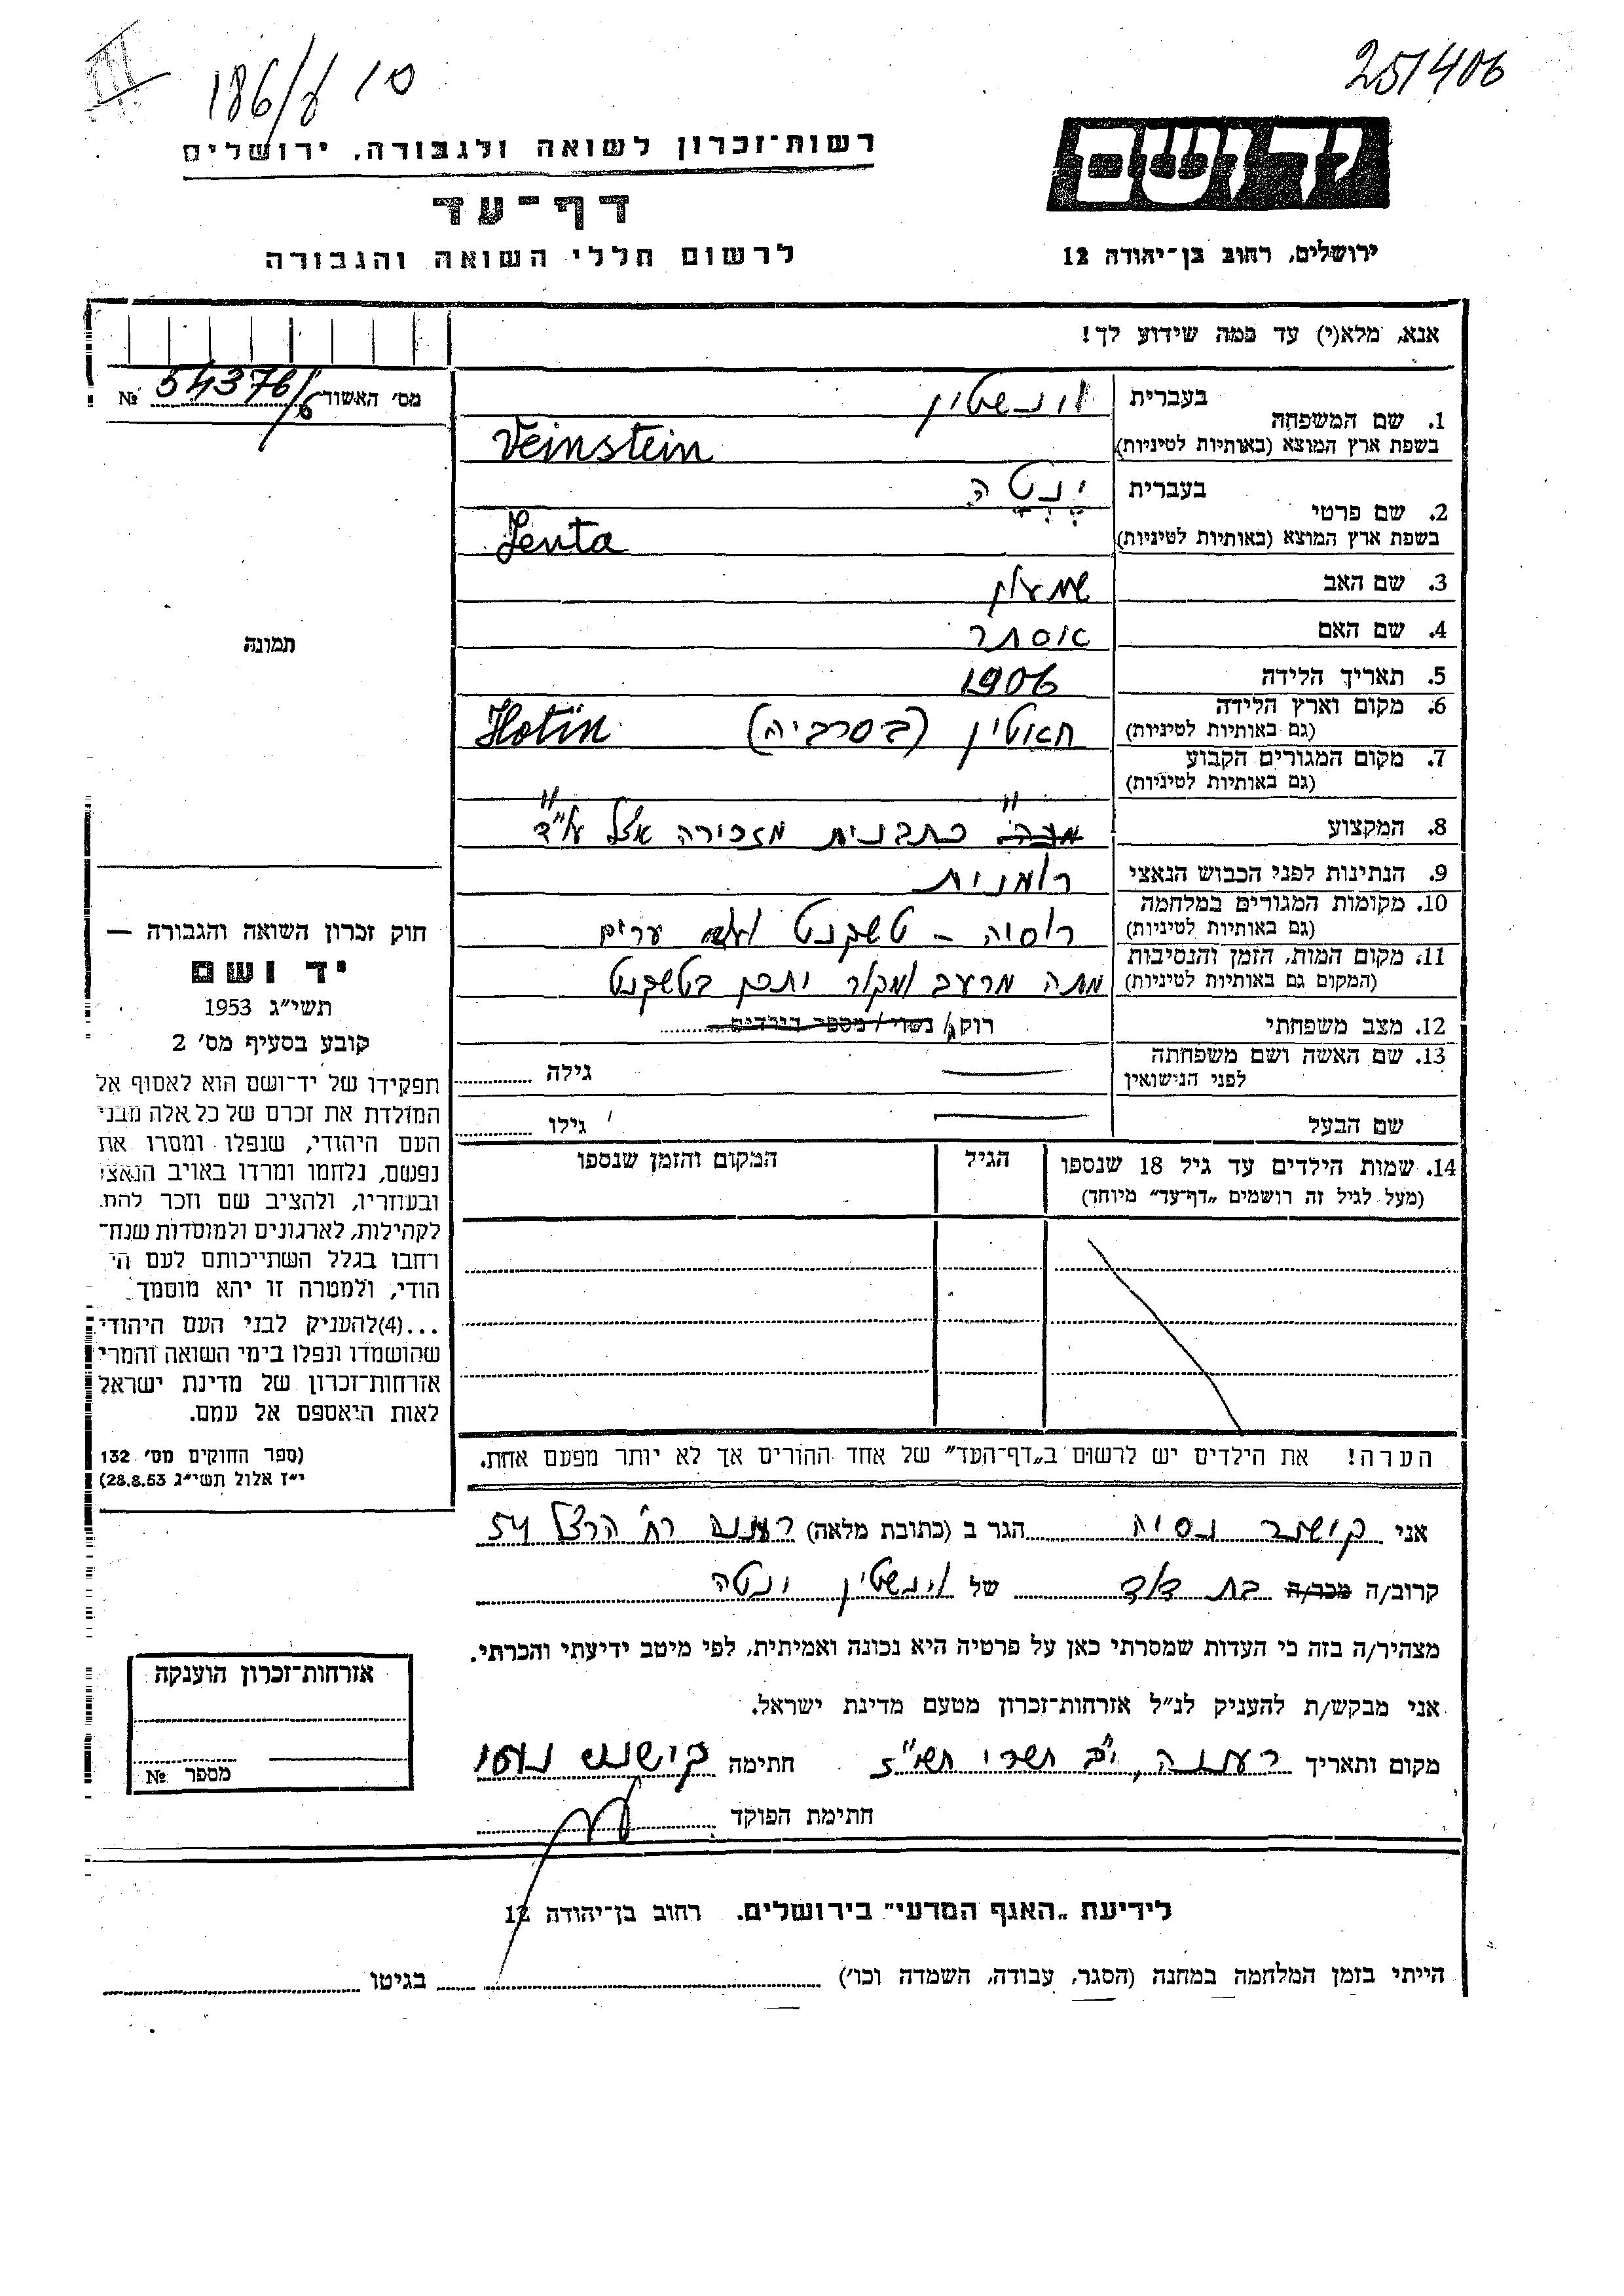 251406
186/ע 10
יד ושם
רשות-זכרון לשואה ולגבורה, ירושלים
דף-עד
ירושלים, רחוב בן-יהודה 12
לרשום חללי השואה והגבורה
אנא, מלא(י) עד כמה שידוע לך!
מס' האשור 54376/6 №
1. שם המשפחה בעברית וינשטין
בשפת ארץ המוצא (באותיות לטיניות) Veinstein
2. שם פרטי בעברית ינטה
בשפת ארץ המוצא (באותיות לטיניות) Jenta
3. שם האב שמעון
4. שם האם אסתר
5. תאריך הלידה 1906
6. מקום וארץ הלידה חאוטין (בסרביה) Hotin
(גם באותיות לטיניות)
7. מקום המגורים הקבוע
(גם באותיות לטיניות) " "
8. המקצוע כתבנית מזכירה אצל עו"ד
9. הנתינות לפני הכבוש הנאצי רומנית
10. מקומות המגורים במלחמה רוסיה - טשקנט ערים
(גם באותיות לטיניות)
11. מקום המות, הזמן והנסיבות מתה מרעב ומקור יתכן בטשקנט
(המקום גם באותיות לטיניות)
12. מצב משפחתי רוק/ה / נשוי / מספר הילדים
13. שם האשה ושם משפחתה
לפני הנישואין גילה
שם הבעל גילו
14. שמות הילדים עד גיל 18 שנספו הגיל המקום והזמן שנספו
(מעל לגיל זה רושמים „דף-עד" מיוחד)
הערה! את הילדים יש לרשום ב„דף-העד" של אחד ההורים אך לא יותר מפעם אחת.
תמונה
חוק זכרון השואה והגבורה —
יד ושם
תשי"ג 1953
קובע בסעיף מס' 2
תפקידו של יד-ושם הוא לאסוף אל
המולדת את זכרם של כל אלה מבני
העם היהודי, שנפלו ומסרו את
נפשם, נלחמו ומרדו באויב הנאצי
ובעוזריו, ולהציב שם וזכר להם,
לקהילות, לארגונים ולמוסדות שנח-
רחבו בגלל השתייכותם לעם הי
הודי, ולמטרה זו יהא מוסמך
...(4)להעניק לבני העם היהודי
שהושמדו ונפלו בימי השואה והמרי
אזרחות-זכרון של מדינת ישראל
לאות היאספם אל עמם.
(ספר החוקים מס' 132
י"ז אלול תשי"ג 28.8.53)
אני קושנר נסיה הגר ב (כתובת מלאה) רעננה רח' הרצל 54
קרוב/ה מכר/ה בת דוד של וינשטין ינטה
מצהיר/ה בזה כי העדות שמסרתי כאן על פרטיה היא נכונה ואמיתית, לפי מיטב ידיעתי והכרתי.
אני מבקש/ת להעניק לנ"ל אזרחות-זכרון מטעם מדינת ישראל.
מקום ותאריך רעננה, י"ב תשרי תשי"ז חתימה קושנר נסיה
חתימת הפוקד
אזרחות-זכרון הוענקה
מספר №
לידיעת „האגף המדעי" בירושלים. רחוב בן-יהודה 12
הייתי בזמן המלחמה במחנה (הסגר, עבודה, השמדה וכו') בגיטו